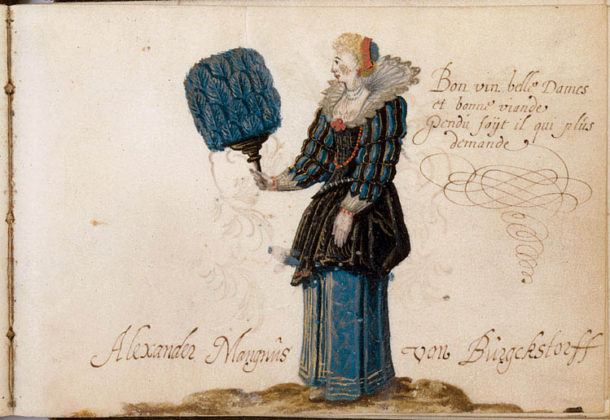 Bon vin. belle Dames
et bonne viande
Pendu soÿt il qui plus
demande
Alexander Mangnus von Burgckstorff